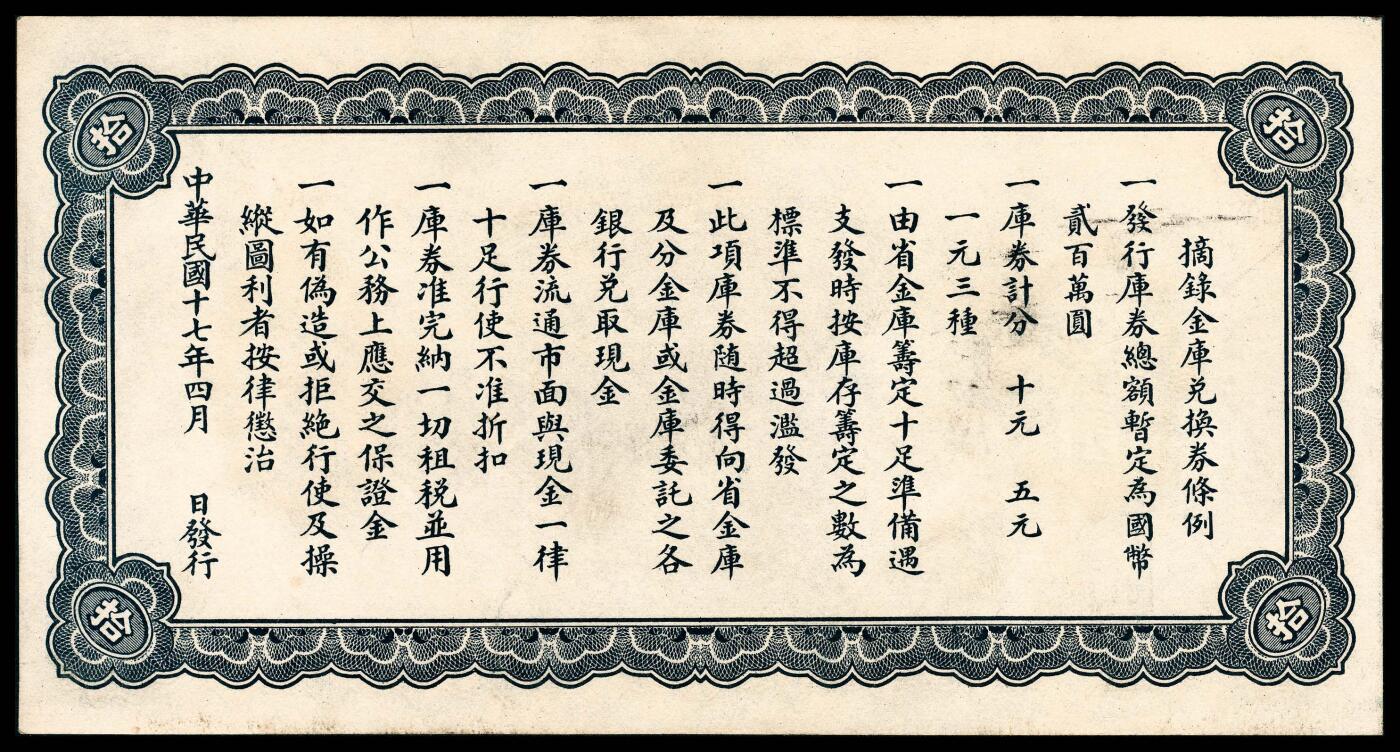 摘錄金庫兌換券條例
一發行庫券總額暫定為國幣
貳百萬圓
一庫券計分 十元 五元
一元三種
一由省金庫籌定十足準備遇
支發時按庫存籌定之數為
標準不得超過濫發
一此項庫券随時得向省金庫
及分金庫或金庫委託之各
銀行兌取現金
一庫券流通市面與現金一律
十足行使不准折扣
一庫券准完納一切租税並用
作公務上應交之保證金
一如有偽造或拒絶行使及操
縱圖利者按律懲治
中華民國十七年四月 日發行
拾
拾
拾
拾